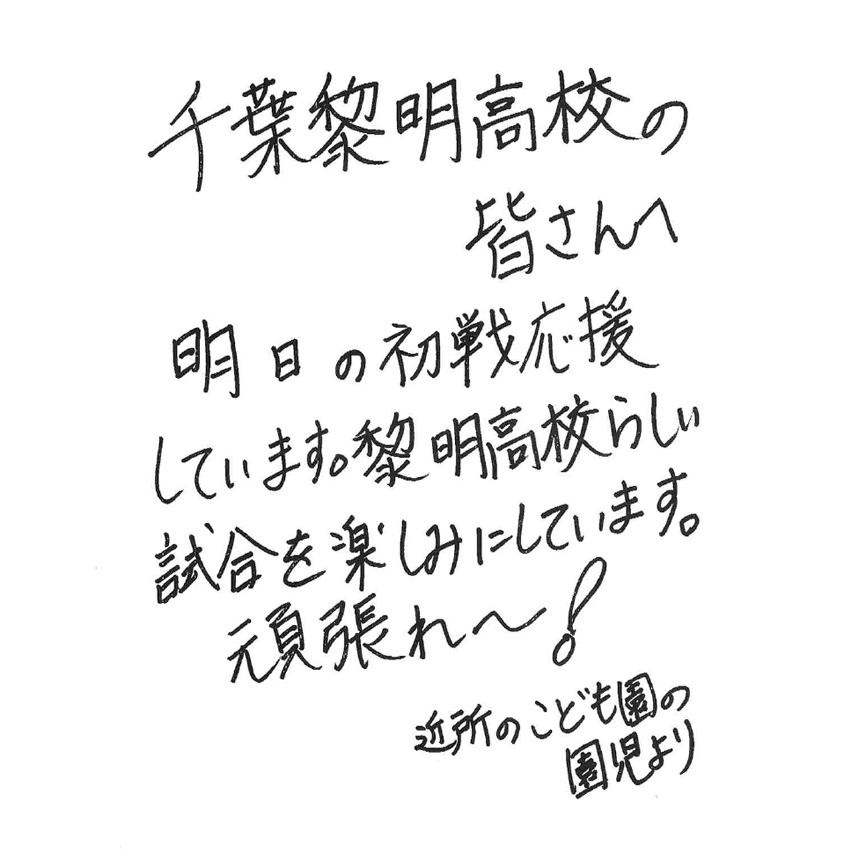 千葉黎明高校の
皆さんへ
明日の初戦応援
しています。黎明高校らしい
試合を楽しみにしています。
頑張れ〜!
近所のこども園の
園児より